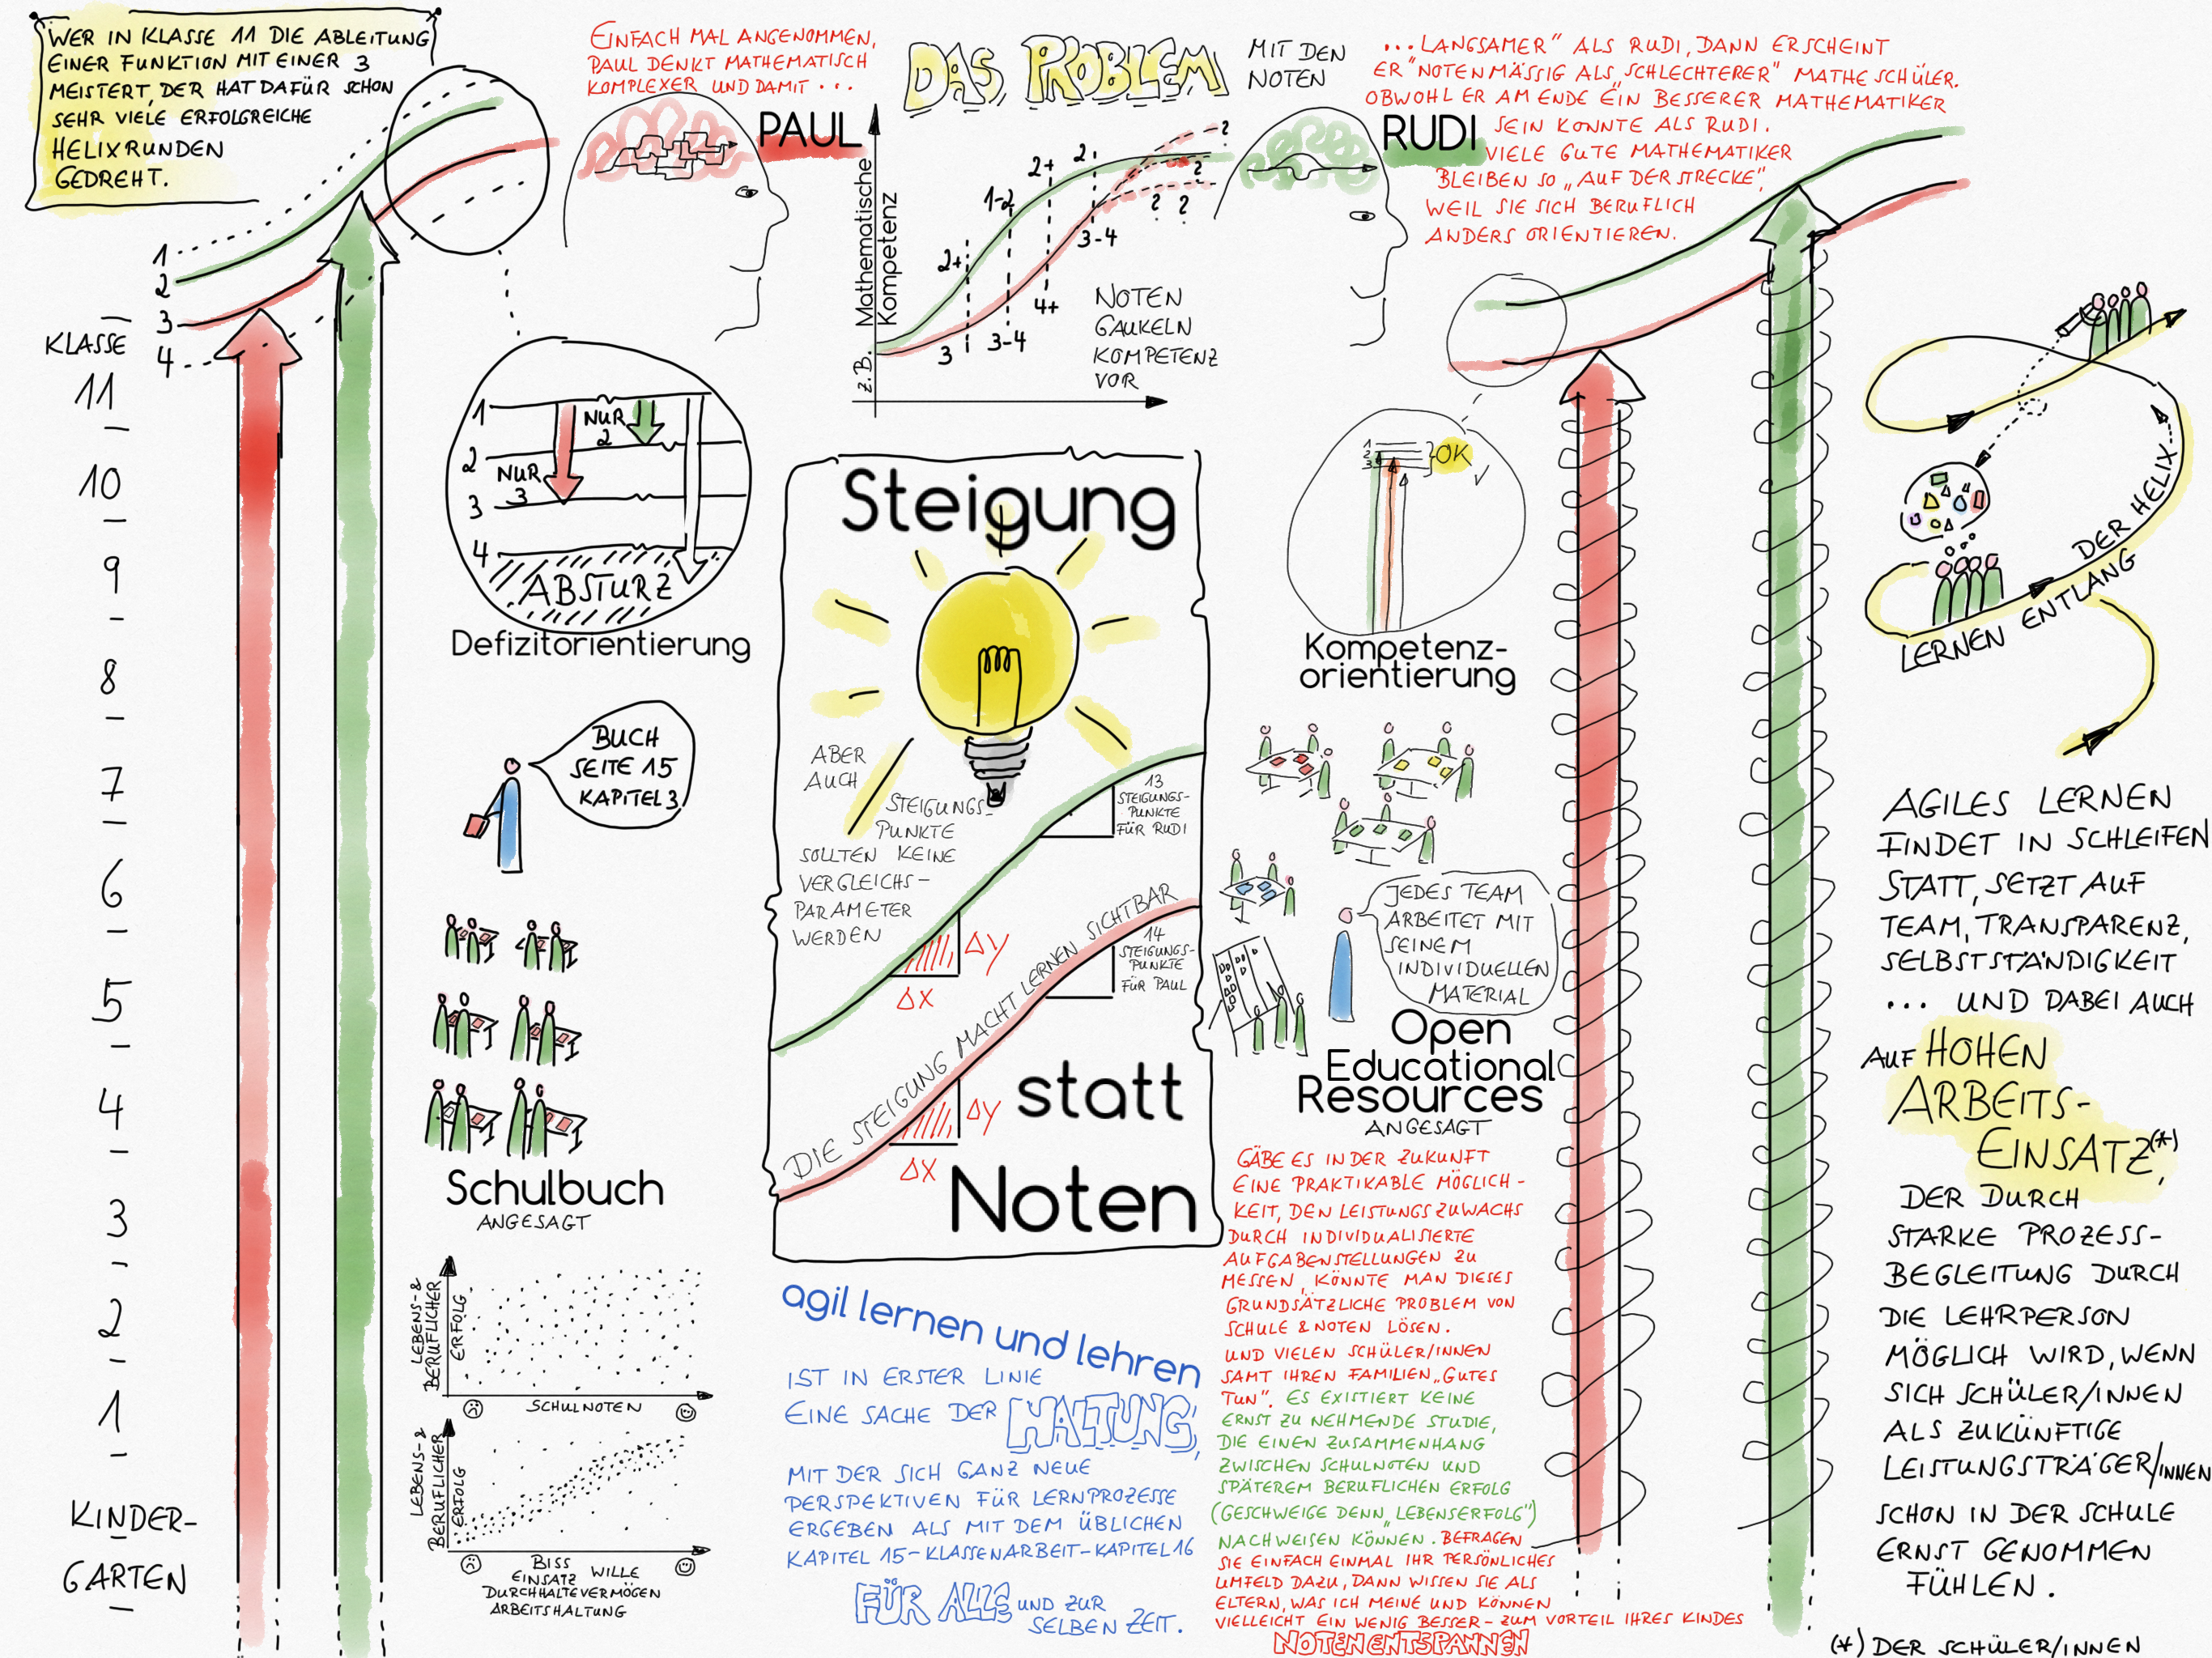 WER IN KLASSE 11 DIE ABLEITUNG
EINER FUNKTION MIT EINER 3
MEISTERT, DER HAT DAFÜR SCHON
SEHR VIELE ERFOLGREICHE
HELIXRUNDEN
GEDREHT.
EINFACH MAL ANGENOMMEN,
PAUL DENKT MATHEMATISCH
KOMPLEXER UND DAMIT...
PAUL
DAS PROBLEM
MIT DEN
NOTEN
...LANGSAMER" ALS RUDI, DANN ERSCHEINT
ER "NOTENMÄSSIG ALS „SCHLECHTERER" MATHE SCHÜLER.
OBWOHL ER AM ENDE EIN BESSERER MATHEMATIKER
SEIN KÖNNTE ALS RUDI.
VIELE GUTE MATHEMATIKER
BLEIBEN SO „AUF DER STRECKE",
WEIL SIE SICH BERUFLICH
ANDERS ORIENTIEREN.
RUDI
z.B. Mathematische
Kompetenz
2+
1-2
2+
2
?
?
? ?
3
3-4
4+
3-4
NOTEN
GAUKELN
KOMPETENZ
VOR
1
2
3
4
KLASSE
11
10
9
8
7
6
5
4
3
2
1
KINDER-
GARTEN
1
2
3
4
NUR
2
NUR
3
ABSTURZ
Defizitorientierung
BUCH
SEITE 15
KAPITEL 3
Schulbuch
ANGESAGT
LEBENS- &
BERUFLICHER
ERFOLG
SCHULNOTEN
LEBENS- &
BERUFLICHER
ERFOLG
BISS
EINSATZ WILLE
DURCHHALTEVERMÖGEN
ARBEITSHALTUNG
Steigung
ABER
AUCH
STEIGUNGS-
PUNKTE
SOLLTEN KEINE
VERGLEICHS-
PARAMETER
WERDEN
13
STEIGUNGS-
PUNKTE
FÜR RUDI
Δy
Δx
DIE STEIGUNG MACHT LERNEN SICHTBAR
14
STEIGUNGS-
PUNKTE
FÜR PAUL
Δy
Δx
statt
Noten
agil lernen und lehren
IST IN ERSTER LINIE
EINE SACHE DER HALTUNG,
MIT DER SICH GANZ NEUE
PERSPEKTIVEN FÜR LERNPROZESSE
ERGEBEN ALS MIT DEM ÜBLICHEN
KAPITEL 15-KLASSENARBEIT-KAPITEL 16
FÜR ALLE UND ZUR
SELBEN ZEIT.
1
2
3
OK
Kompetenz-
orientierung
JEDES TEAM
ARBEITET MIT
SEINEM
INDIVIDUELLEN
MATERIAL
Open
Educational
Resources
ANGESAGT
GÄBE ES IN DER ZUKUNFT
EINE PRAKTIKABLE MÖGLICH-
KEIT, DEN LEISTUNGSZUWACHS
DURCH INDIVIDUALISIERTE
AUFGABENSTELLUNGEN ZU
MESSEN, KÖNNTE MAN DIESES
GRUNDSÄTZLICHE PROBLEM VON
SCHULE & NOTEN LÖSEN.
UND VIELEN SCHÜLER/INNEN
SAMT IHREN FAMILIEN „GUTES
TUN". ES EXISTIERT KEINE
ERNST ZU NEHMENDE STUDIE,
DIE EINEN ZUSAMMENHANG
ZWISCHEN SCHULNOTEN UND
SPÄTEREM BERUFLICHEN ERFOLG
(GESCHWEIGE DENN „LEBENSERFOLG")
NACHWEISEN KÖNNEN. BEFRAGEN
SIE EINFACH EINMAL IHR PERSÖNLICHES
UMFELD DAZU, DANN WISSEN SIE ALS
ELTERN, WAS ICH MEINE UND KÖNNEN
VIELLEICHT EIN WENIG BESSER - ZUM VORTEIL IHRES KINDES
NOTENENTSPANNEN
LERNEN ENTLANG DER HELIX...
AGILES LERNEN
FINDET IN SCHLEIFEN
STATT, SETZT AUF
TEAM, TRANSPARENZ,
SELBSTSTÄNDIGKEIT
... UND DABEI AUCH
AUF HOHEN
ARBEITS-
EINSATZ(*),
DER DURCH
STARKE PROZESS-
BEGLEITUNG DURCH
DIE LEHRPERSON
MÖGLICH WIRD, WENN
SICH SCHÜLER/INNEN
ALS ZUKÜNFTIGE
LEISTUNGSTRÄGER/INNEN
SCHON IN DER SCHULE
ERNST GENOMMEN
FÜHLEN.
(*) DER SCHÜLER/INNEN